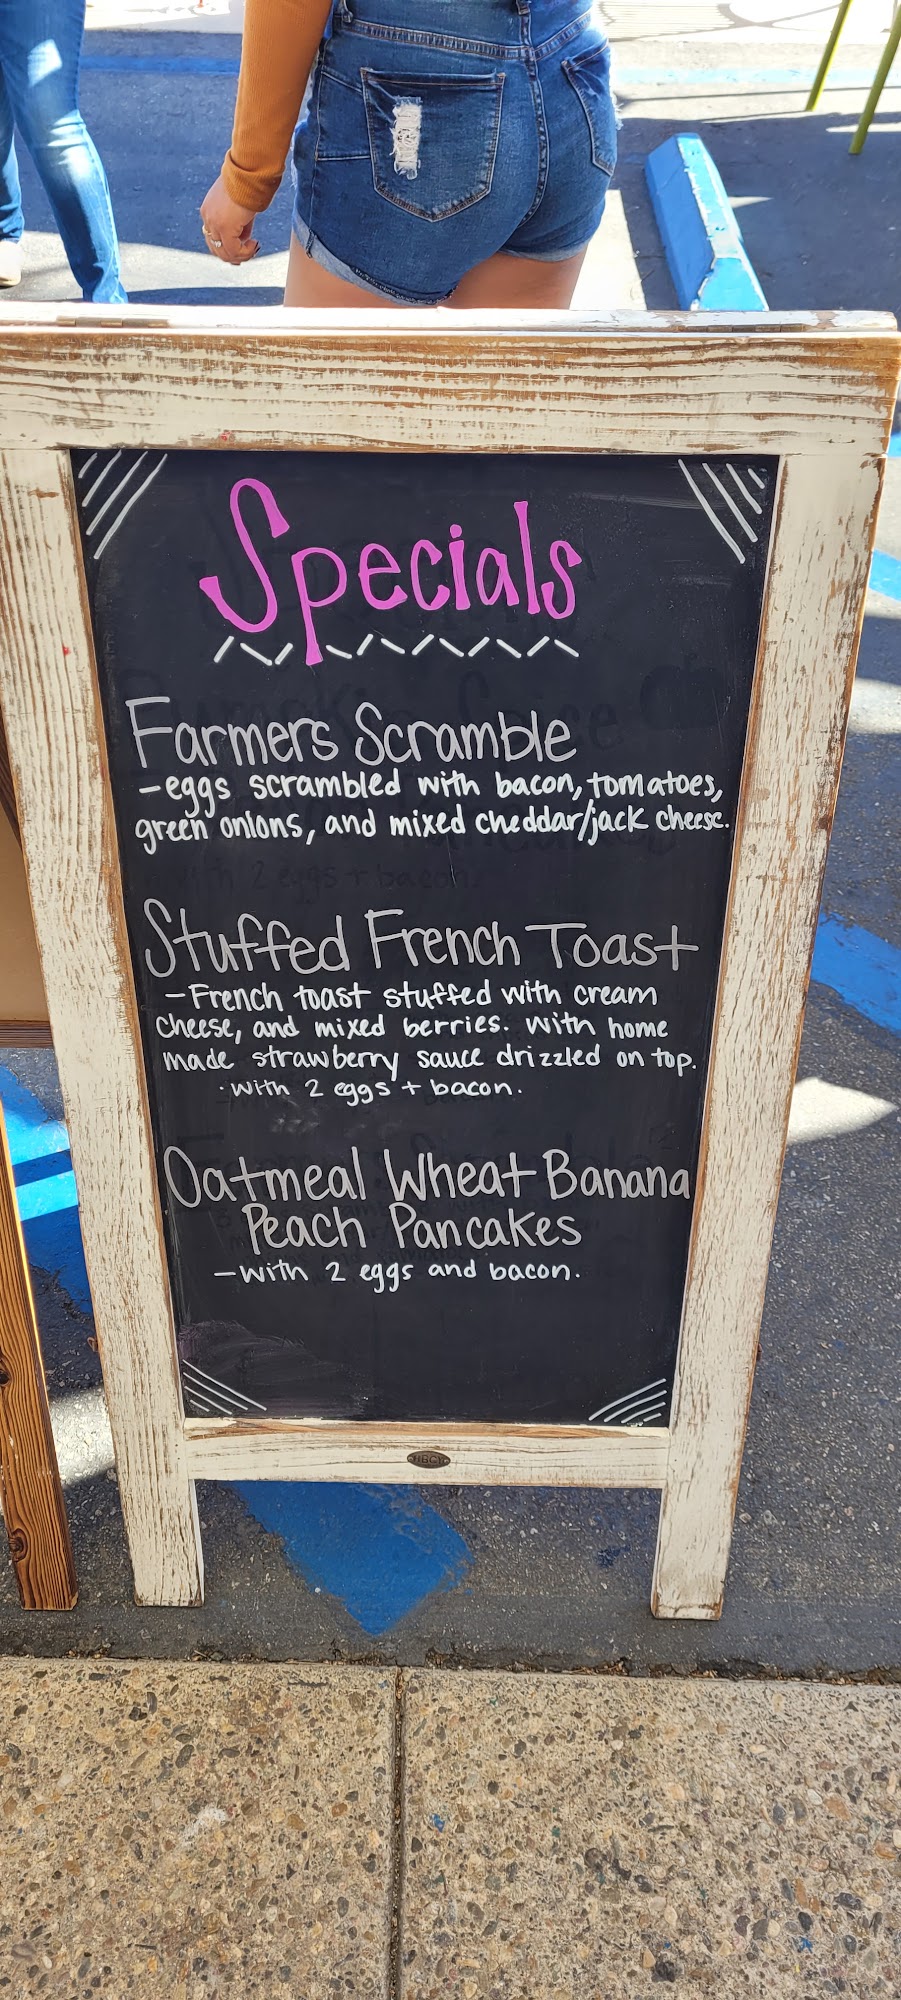 Specials
Farmers Scramble
-eggs scrambled with bacon, tomatoes,
green onions, and mixed cheddar/jack cheese.
Stuffed French Toast
-French toast stuffed with cream
cheese, and mixed berries. With home
made strawberry sauce drizzled on top.
·with 2 eggs + bacon.
Oatmeal Wheat Banana
Peach Pancakes
-with 2 eggs and bacon.